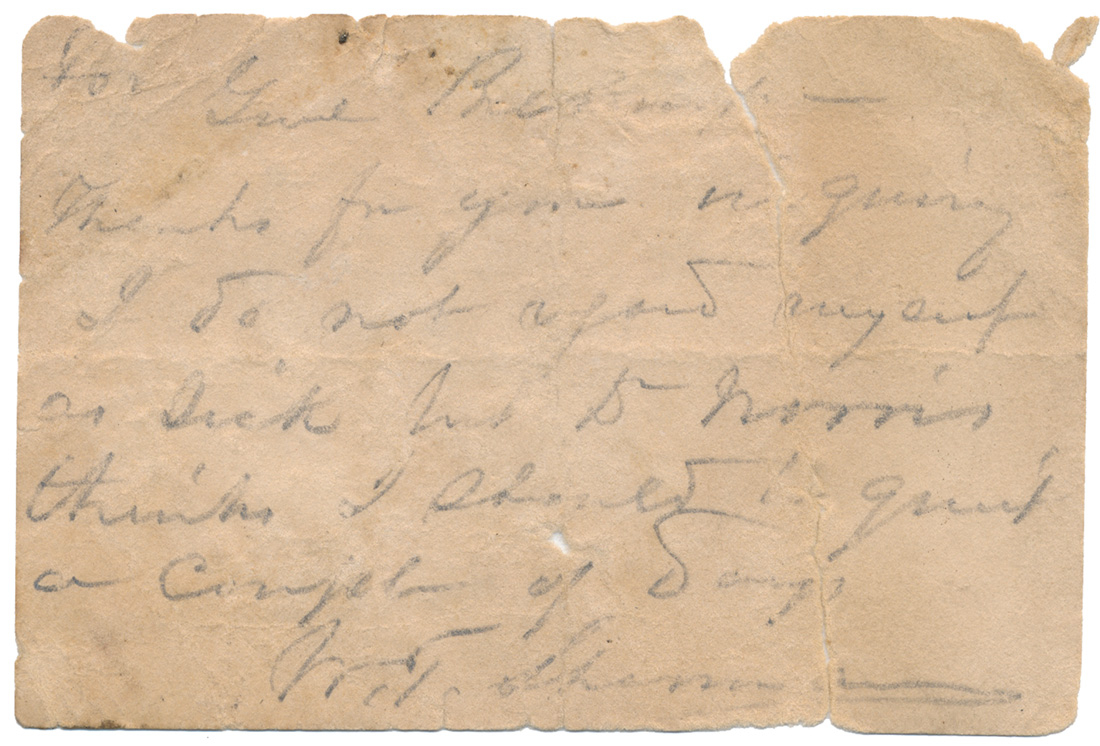 For
Genl
Thanks for your inquiry
I do not regard myself
as sick but Dr Norris
thinks I should be quiet
a couple of days
W. T. Sherman